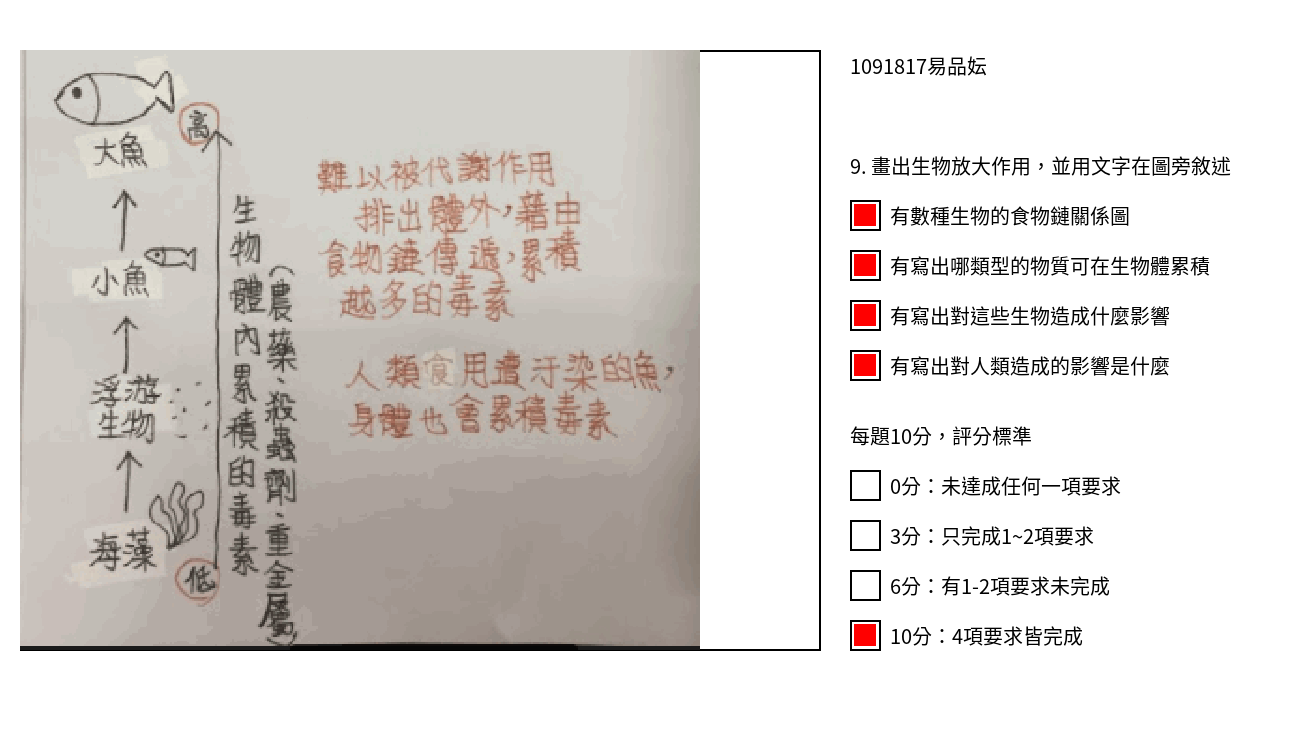 大魚
小魚
浮游
生物
海藻
高
低
生物體內累積的毒素
(農藥、殺蟲劑、重金屬)
難以被代謝作用
排出體外,藉由
食物鏈傳遞,累積
越多的毒素
人類食用遭汙染的魚,
身體也會累積毒素
1091817易品妘
9. 畫出生物放大作用,並用文字在圖旁敘述
有數種生物的食物鏈關係圖
有寫出哪類型的物質可在生物體累積
有寫出對這些生物造成什麼影響
有寫出對人類造成的影響是什麼
每題10分,評分標準
0分:未達成任何一項要求
3分:只完成1~2項要求
6分:有1-2項要求未完成
10分:4項要求皆完成